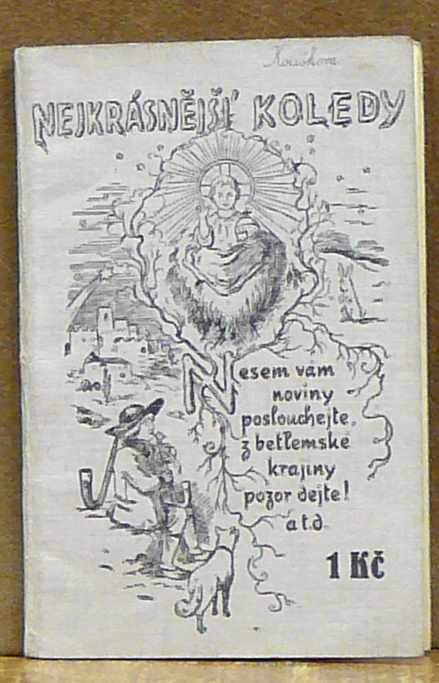 NEJKRÁSNĚJŠÍ KOLEDY
Nesem vám
noviny
poslouchejte,
z betlemské
krajiny
pozor dejte!
a t.d.
1 Kč